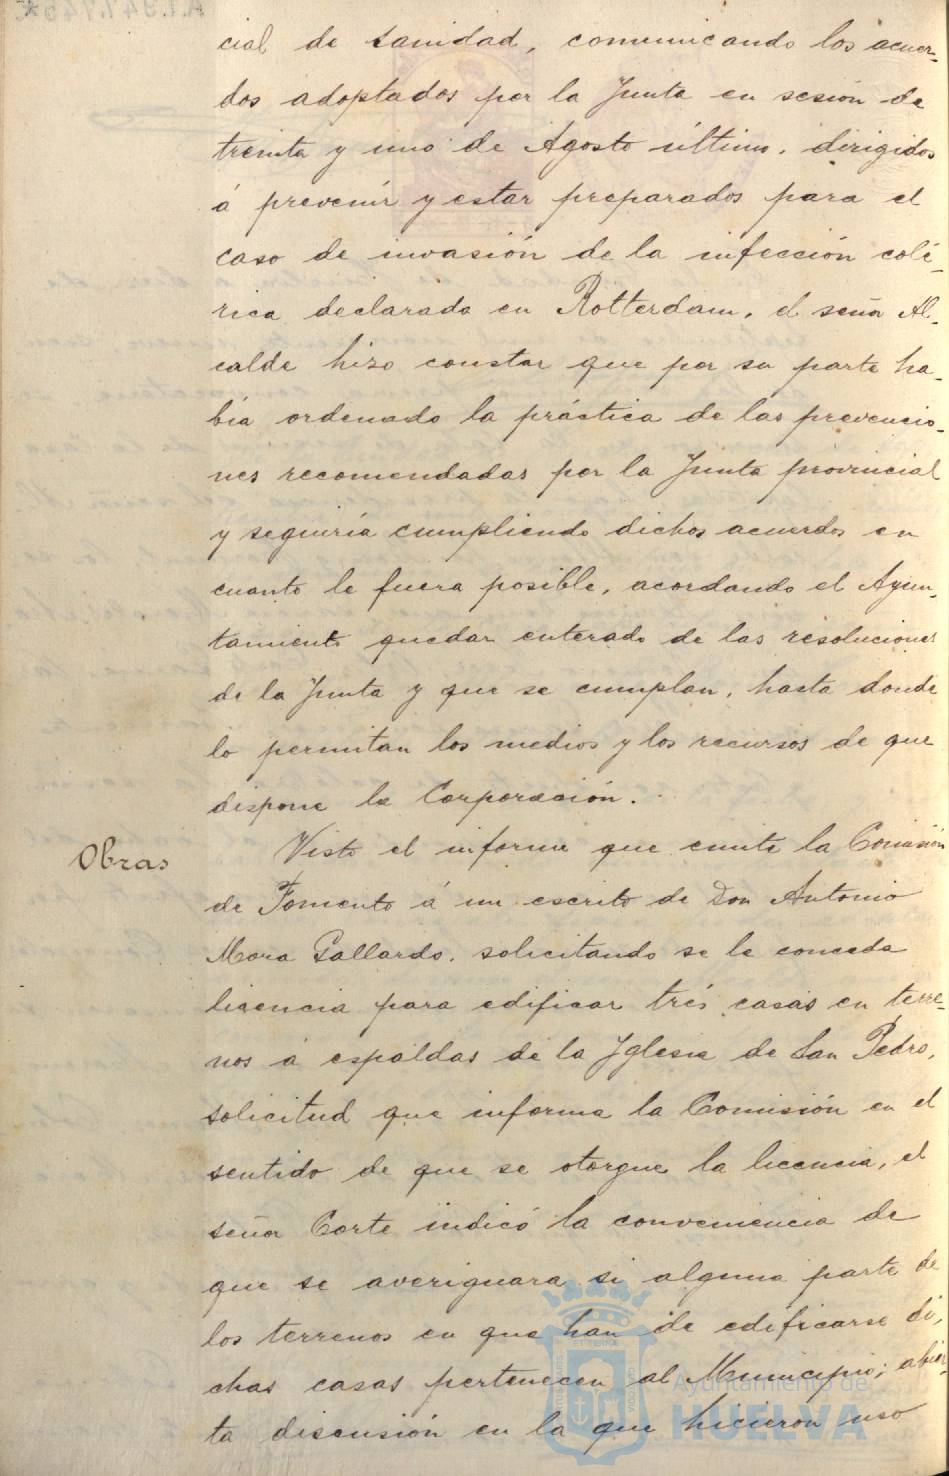 cial de sanidad, comunicando los acuer-
dos adoptados por la Junta en sesión de
treinta y uno de Agosto último, dirigidos
á prevenir y estar preparados para el
caso de invasión de la infección colé-
rica declarada en Rotterdam, el señor Al-
calde hizo constar que por su parte ha-
bía ordenado la práctica de las prevencio-
nes recomendadas por la Junta provincial
y seguiría cumpliendo dichos acuerdos en
cuanto le fuera posible, acordando el Ayun-
tamiento quedar enterado de las resoluciones
de la Junta y que se cumplan, hasta donde
lo permitan los medios y los recursos de que
dispone la Corporación.
Obras
Visto el informe que emite la Comisión
de Fomento á un escrito de Don Antonio
Mora Gallardo, solicitando se le conceda
licencia para edificar trés casas en terre-
nos á espaldas de la Yglesia de San Pedro,
solicitud que informa la Comisión en el
sentido de que se otorgue la licencia, el
señor Corte indicó la conveniencia de
que se averiguara si alguna parte de
los terrenos en que han de edificarse di-
chas casas pertenecen al Municipio; abier-
ta discusión en la que hicieron uso
Ayuntamiento de
HUELVA